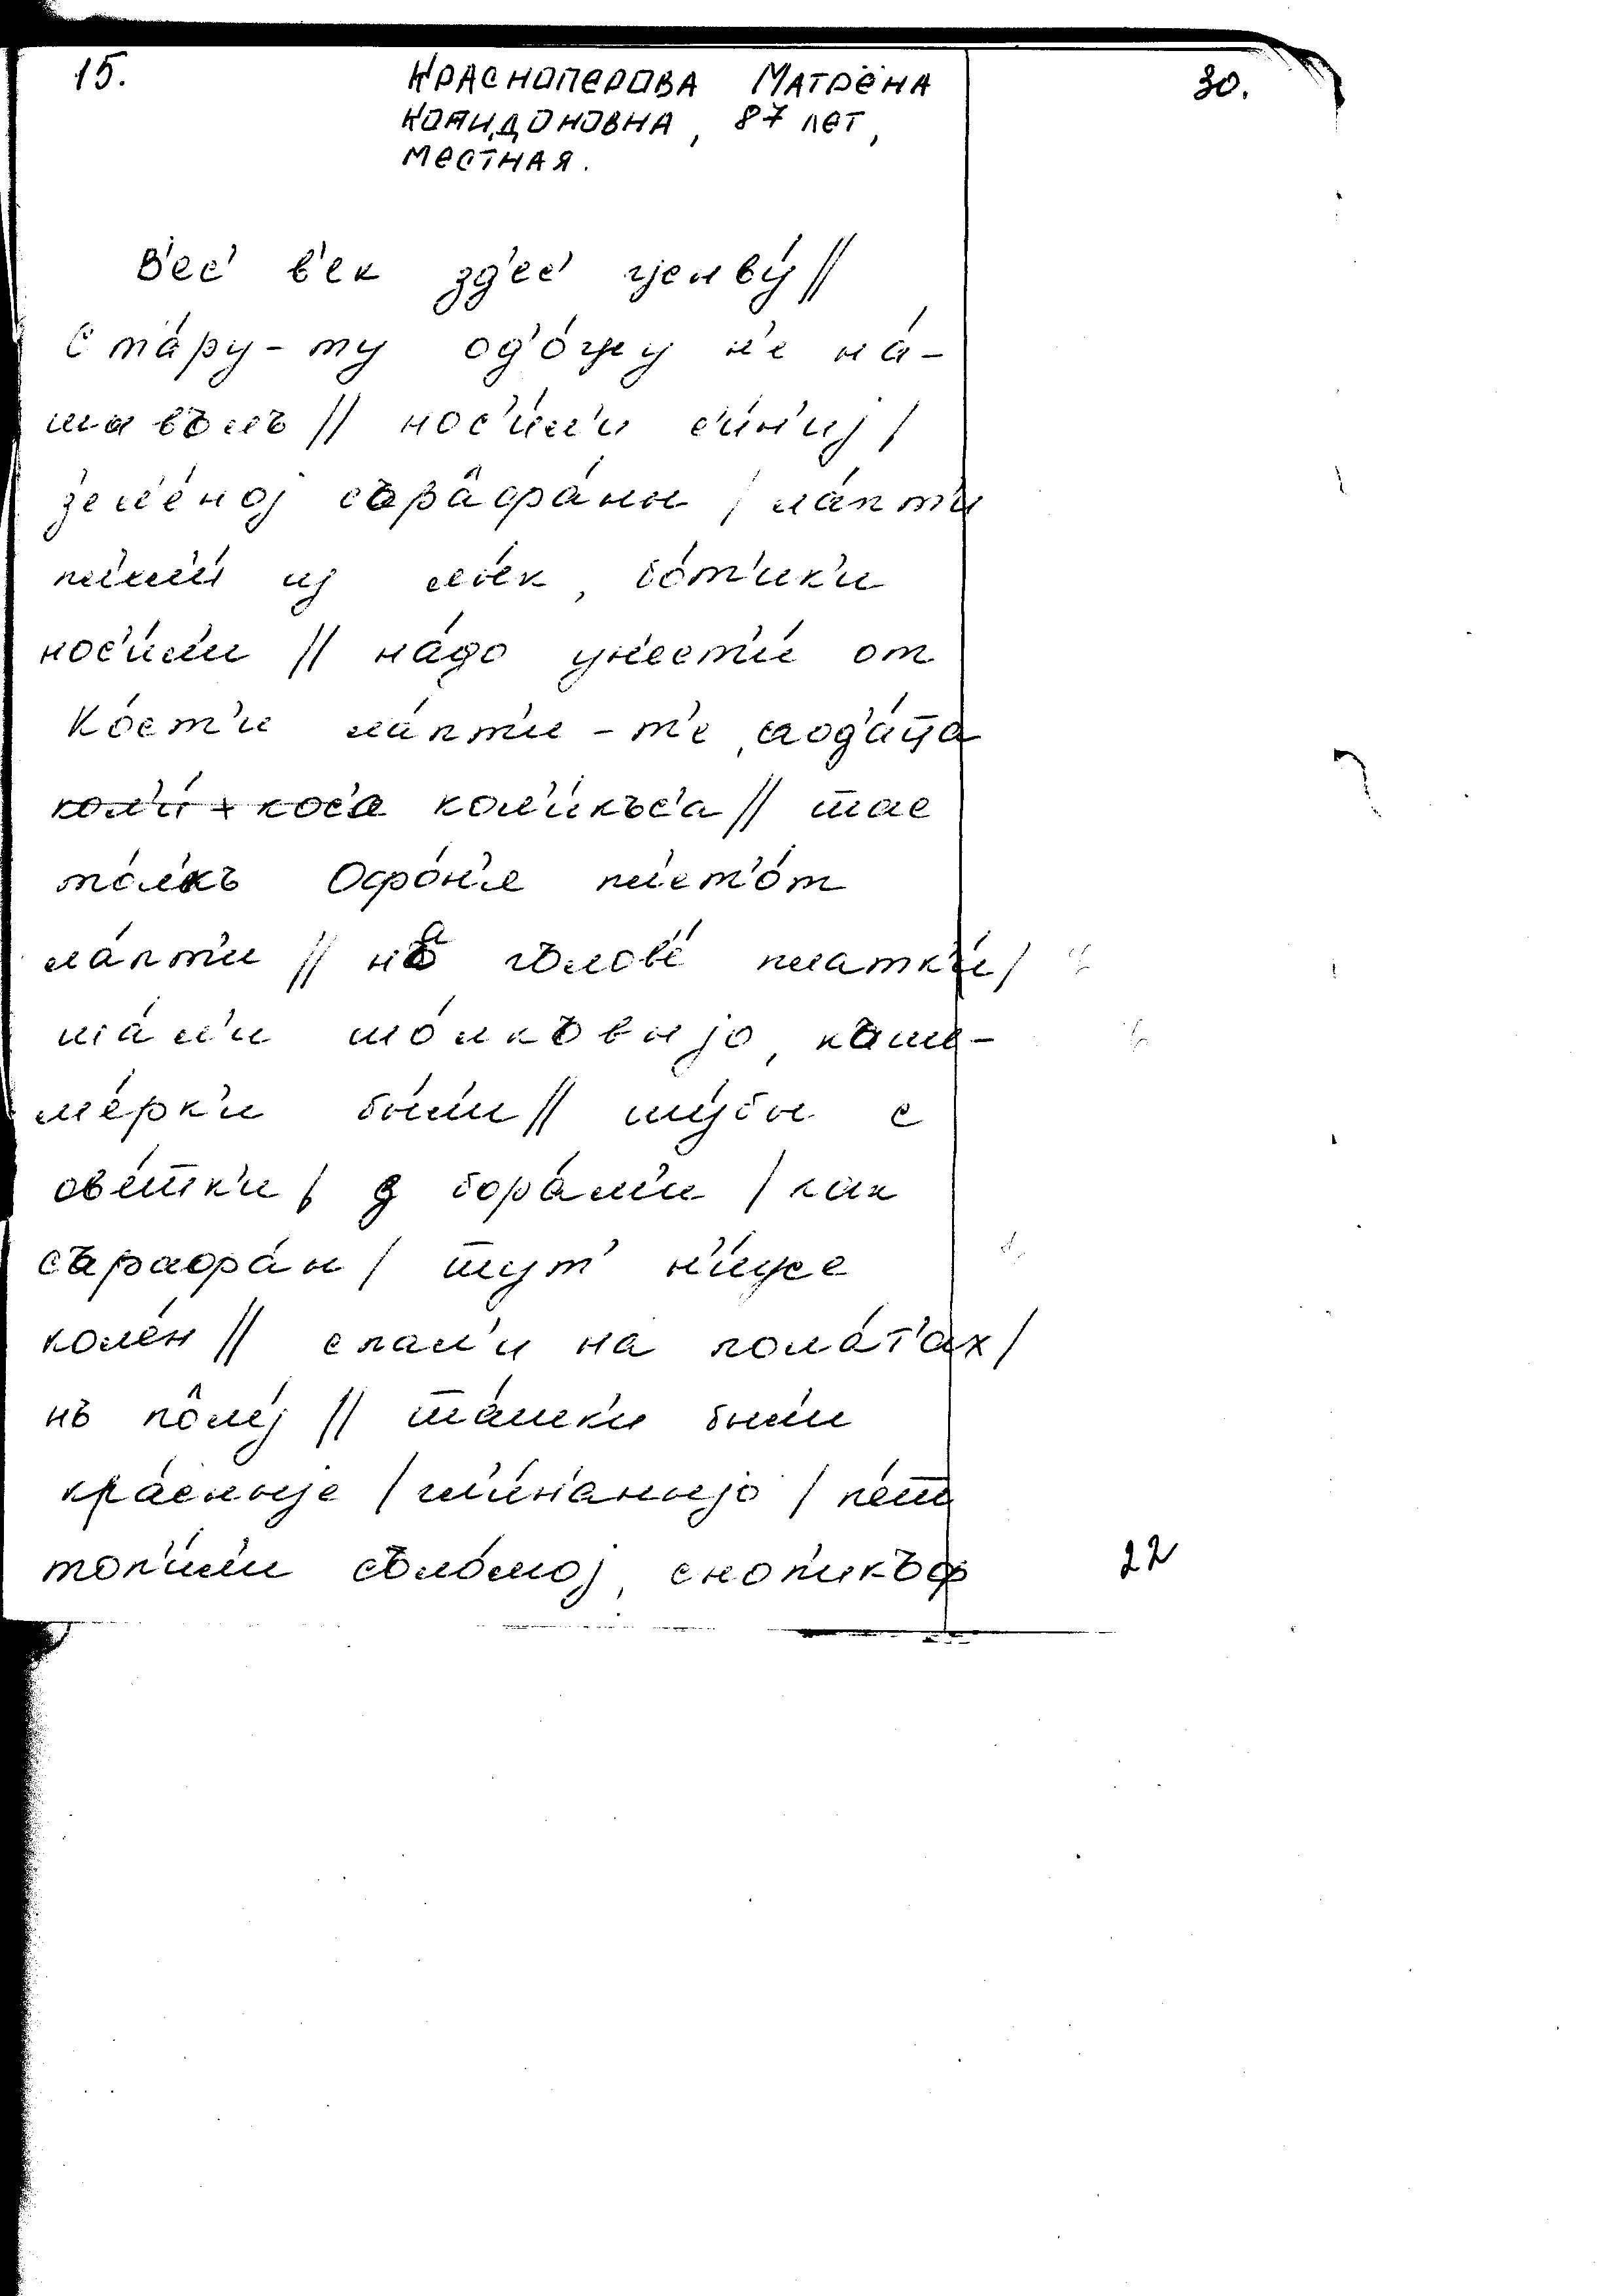 15. Красноперова Матрёна 30.
Копидоновна, 87 лет,
местная.
в'ес' в'ек зд'ес' жыву́ //
ста́ру-ту од'о́жу н'е на́-
шавъль // нос'и́л'и с'и́н'иj /
з'ел'е́ноj съра̂фа́ны / ла́пт'и
пл'ил'и́ из лы́к, бо́т'ик'и
нос'и́л'и // на́до ун'ест'и́ от
Ко́ст'и ла́пт'и-т'е, сгод'а́ца
кол'и́ + кос'а кол'и́къс'а // т̅ас
то́л'къ Офо́н'а пл'ет'о́т
ла́пт'и // на голов'е́ платк'и́ /
ша́л'и шо́лкъвыjо, каше-
м'е́рк'и бы́л'и // шу́бы с
ов'е́т̅к'и / з бора́м'и / как
сърафа́н / т̅ут' н'и́же
кол'е́н // спал'и на пола́т'ах /
нъ по̂лу́ // т̅а́шк'и бы́л'и
кра́сныjе / гл'и́н'аныjо / п'ет̅
топ'и́л'и соло́моj, снопикъф 22